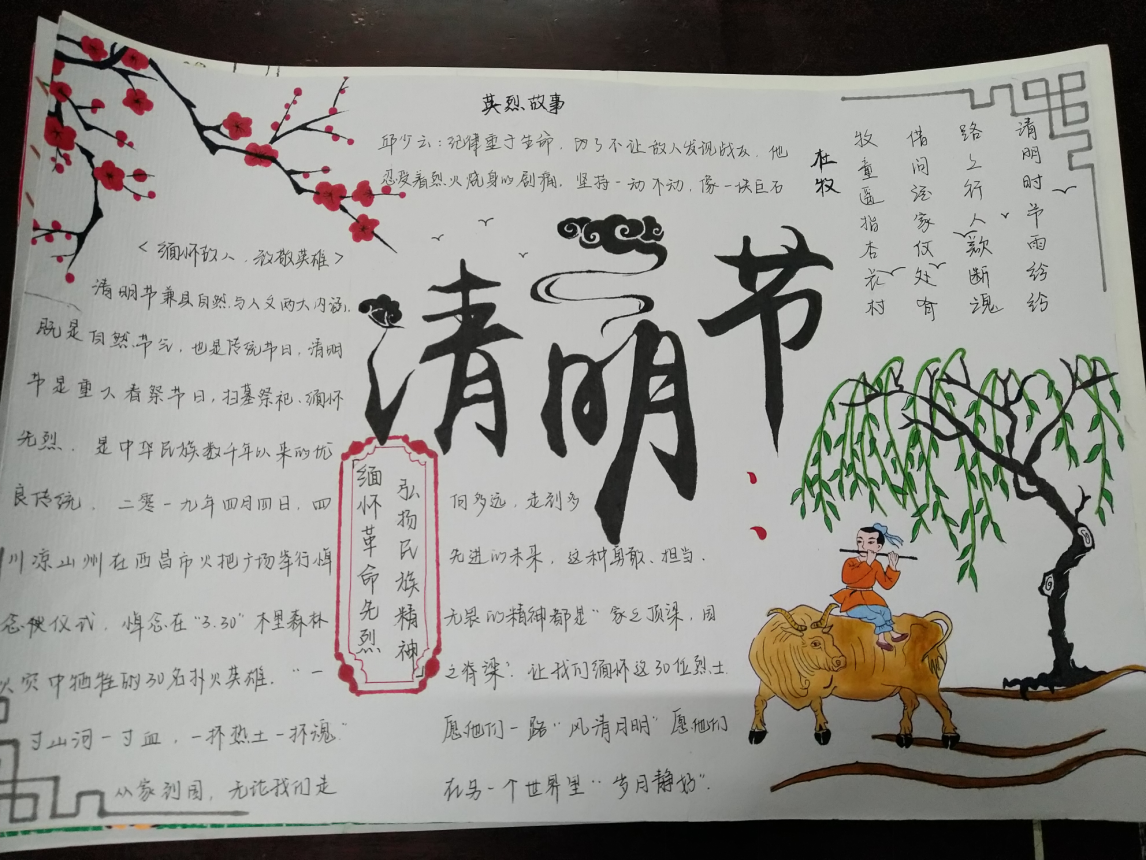 英烈故事
邱少云：纪律重于生命，为了不让敌人发现战友，他
忍受着烈火烧身的剧痛，坚持一动不动，像一块巨石
清明时节雨纷纷
路上行人欺断魂
借问酒家何处有
牧童遥指杏花村
杜牧
清明节
<缅怀故人，致敬英雄>
清明节兼具自然与人文两大内涵，
既是自然节气，也是传统节日，清明
节是重大春祭节日，扫墓祭祀、缅怀
先烈，是中华民族数千年以来的优
良传统。二零一九年四月四日，四
川凉山州在西昌市火把广场举行悼
念仪式，悼念在"3.30"木里森林
火灾中牺牲的30名扑火英雄。"一
寸山河一寸血，一抔热土一抔魂"
从家到国，无论我们走
弘扬民族精神
缅怀革命先烈
向多远，走到多
先进的未来，这种勇敢、担当、
无畏的精神都是"家之顶梁，国
之脊梁"。让我们缅怀这30位烈士
愿他们一路"风清月明"愿他们
在另一个世界里"岁月静好"。